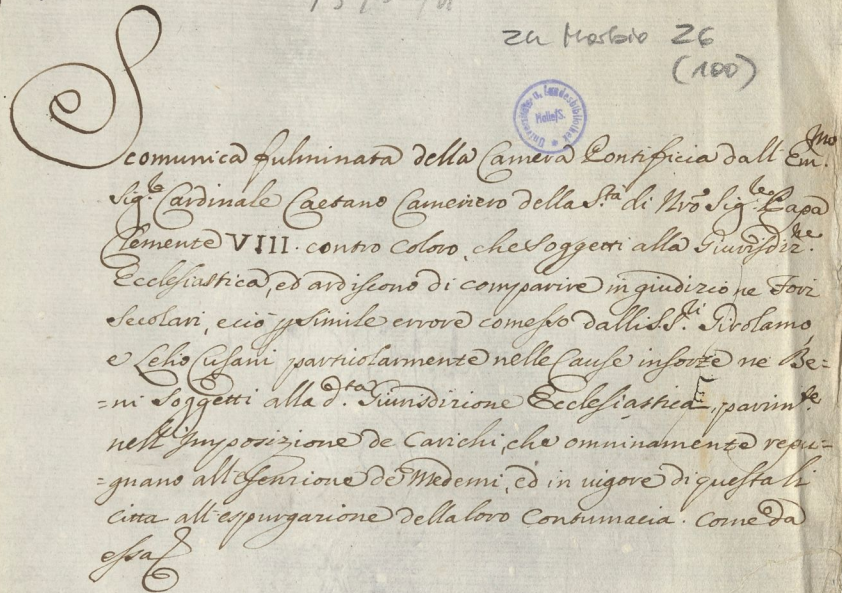 zu Morbio 26
(100)
Universitäts- u. Landesbibliothek
Halle/S.
Scomunica fulminata della Camera Pontificia dall' Em.mo
Sig.le Cardinale Caetano Cameriero della S.ta di Nrõ Sig.le Papa
Clemente VIII. contro coloro, che soggetti alla Giurisdiz.ne
Ecclesiastica, ed ardiscono di comparire in giudizio ne Fori
secolari, e ciò p simile errore comesso dalli SS.ri Girolamo,
e Lelio Cusani particolarmente nelle Cause insorte ne Be=
=ni soggetti alla d.ta Giurisdizione Ecclesiastica, parim.te
nell'Imposizione de Carichi, che omninamente repu=
=gnano all'esenzione de Medemi, ed in vigore di questa li
citta all'espurgazione della loro Contumacia. Come da
essa